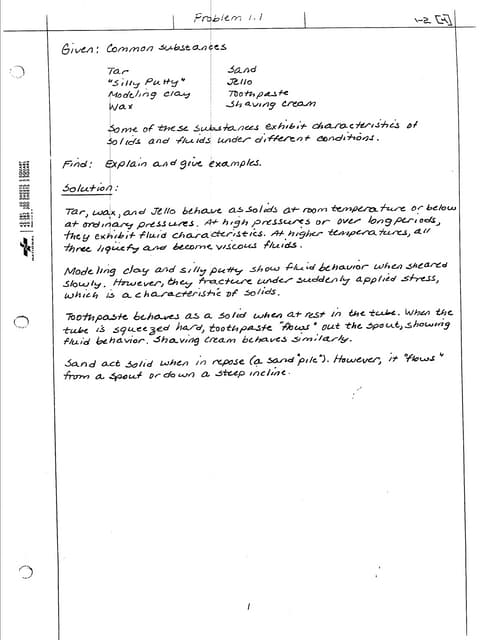 Problem 1.1
1-2 [4]
Given: Common substances
Tar Sand
"Silly Putty" Jello
Modeling clay Toothpaste
Wax Shaving cream
Some of these substances exhibit characteristics of
solids and fluids under different conditions.
Find: Explain and give examples.
Solution:
Tar, wax, and Jello behave as solids at room temperature or below
at ordinary pressures. At high pressures or over long periods,
they exhibit fluid characteristics. At higher temperatures, all
three liquefy and become viscous fluids.
Modeling clay and silly putty show fluid behavior when sheared
slowly. However, they fracture under suddenly applied stress,
which is a characteristic of solids.
Toothpaste behaves as a solid when at rest in the tube. When the
tube is squeezed hard, toothpaste "flows" out the spout, showing
fluid behavior. Shaving cream behaves similarly.
Sand act solid when in repose (a sand "pile"). However, it "flows"
from a spout or down a steep incline.
1